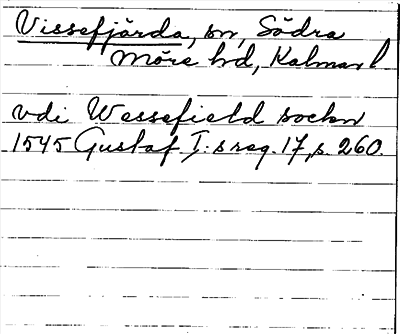 Vissefjärda, sn, Södra
Möre hd, Kalmar l
vdi Wessefield sockn
1545 Gustaf I:s reg. 17, s. 260.